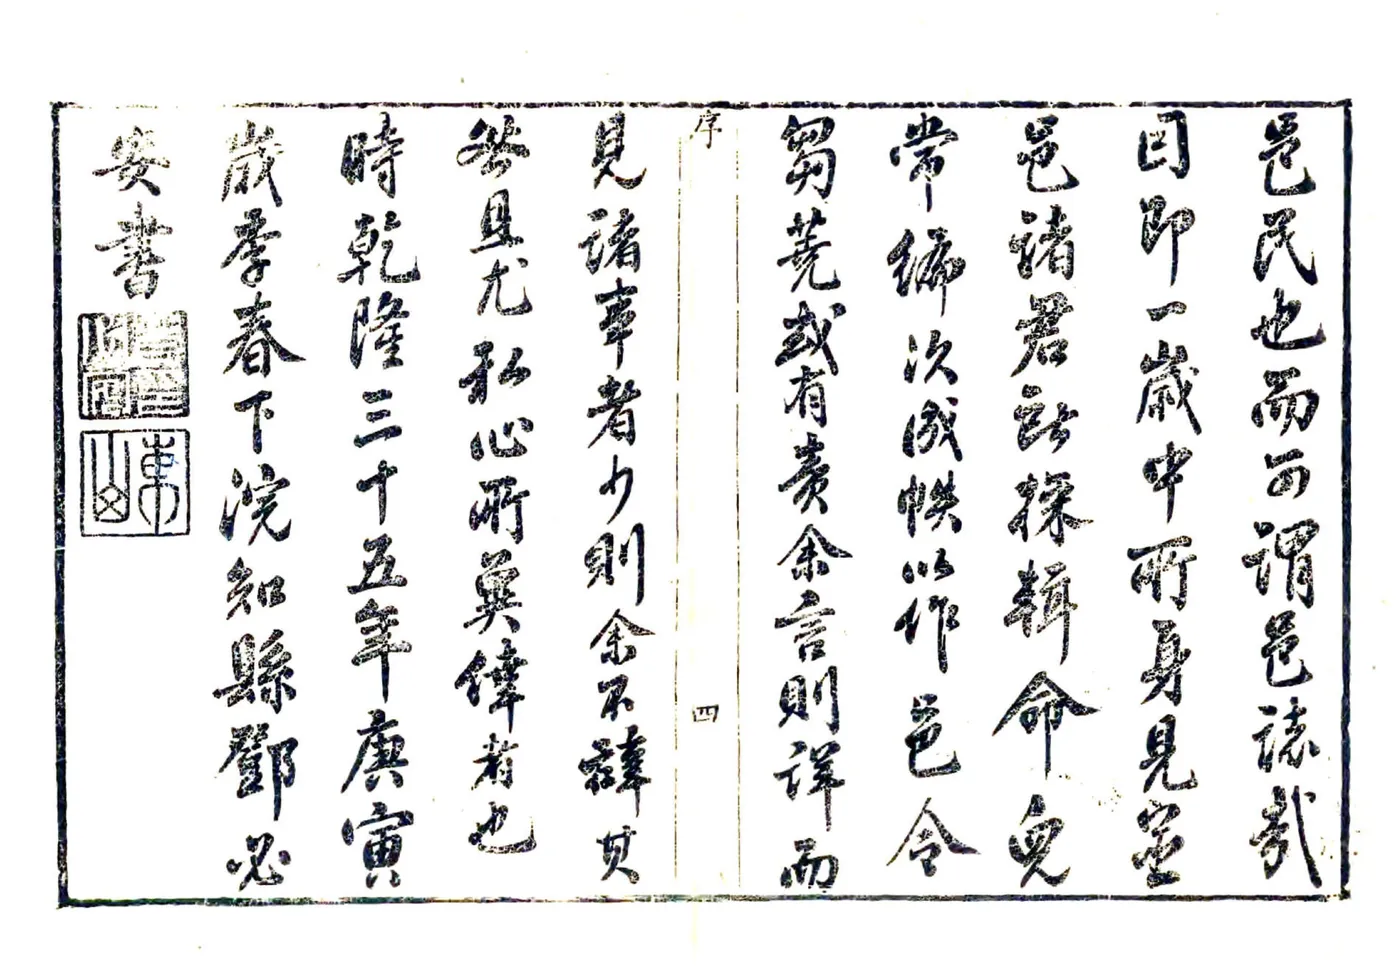 邑民也而可謂邑誌哉
因即一歲中所身見並
邑諸君所採輯命兒
常編次成帙以作邑令
芻蕘或有責余言則詳而
序
四
見諸事者少則余不辭其
咎且尤私心所冀倖者也
時乾隆三十五年庚寅
歲季春下浣知縣鄧必
安書
東山